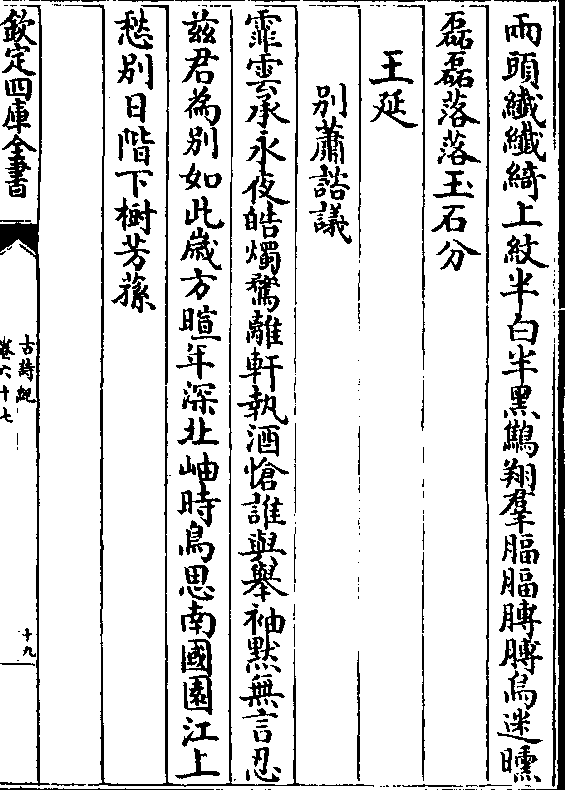 兩頭纖纖綺上紋半白半黑鷴翔羣腷腷膊膊烏迷曛
磊磊落落玉石分
王延
别蕭諮議
霏雲承永夜皓燭驚離軒執酒愴誰與舉袖黙無言忍
兹君為别如此嵗方暄年深北岫時鳥思南國園江上
愁别日階下樹芳蓀
欽定四庫全書
古詩紀
卷六十七
十九